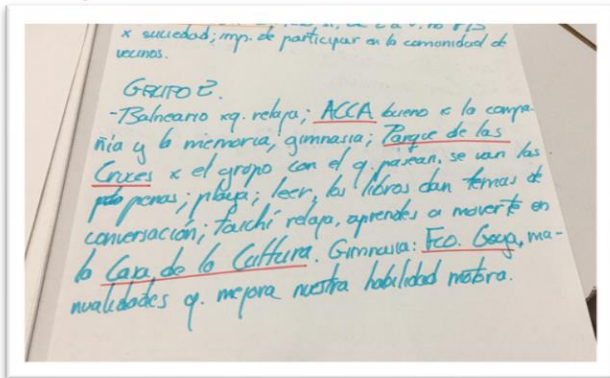 x suciedad; imp. de participar en la comunidad de
vecinos.
GRUPO 2.
-Balneario xq. relaja; ACCA bueno x la compa-
ñia y la memoria, gimnasia; Parque de las
Cruces x el grupo con el q. pasean, se van las
penas; playa; leer, los libros dan temas de
conversación; taichí relaja, aprendes a moverte en
la Casa de la Cultura. Gimnasia: Fco. Goya, ma-
nualidades q. mejora nuestra habilidad motora.